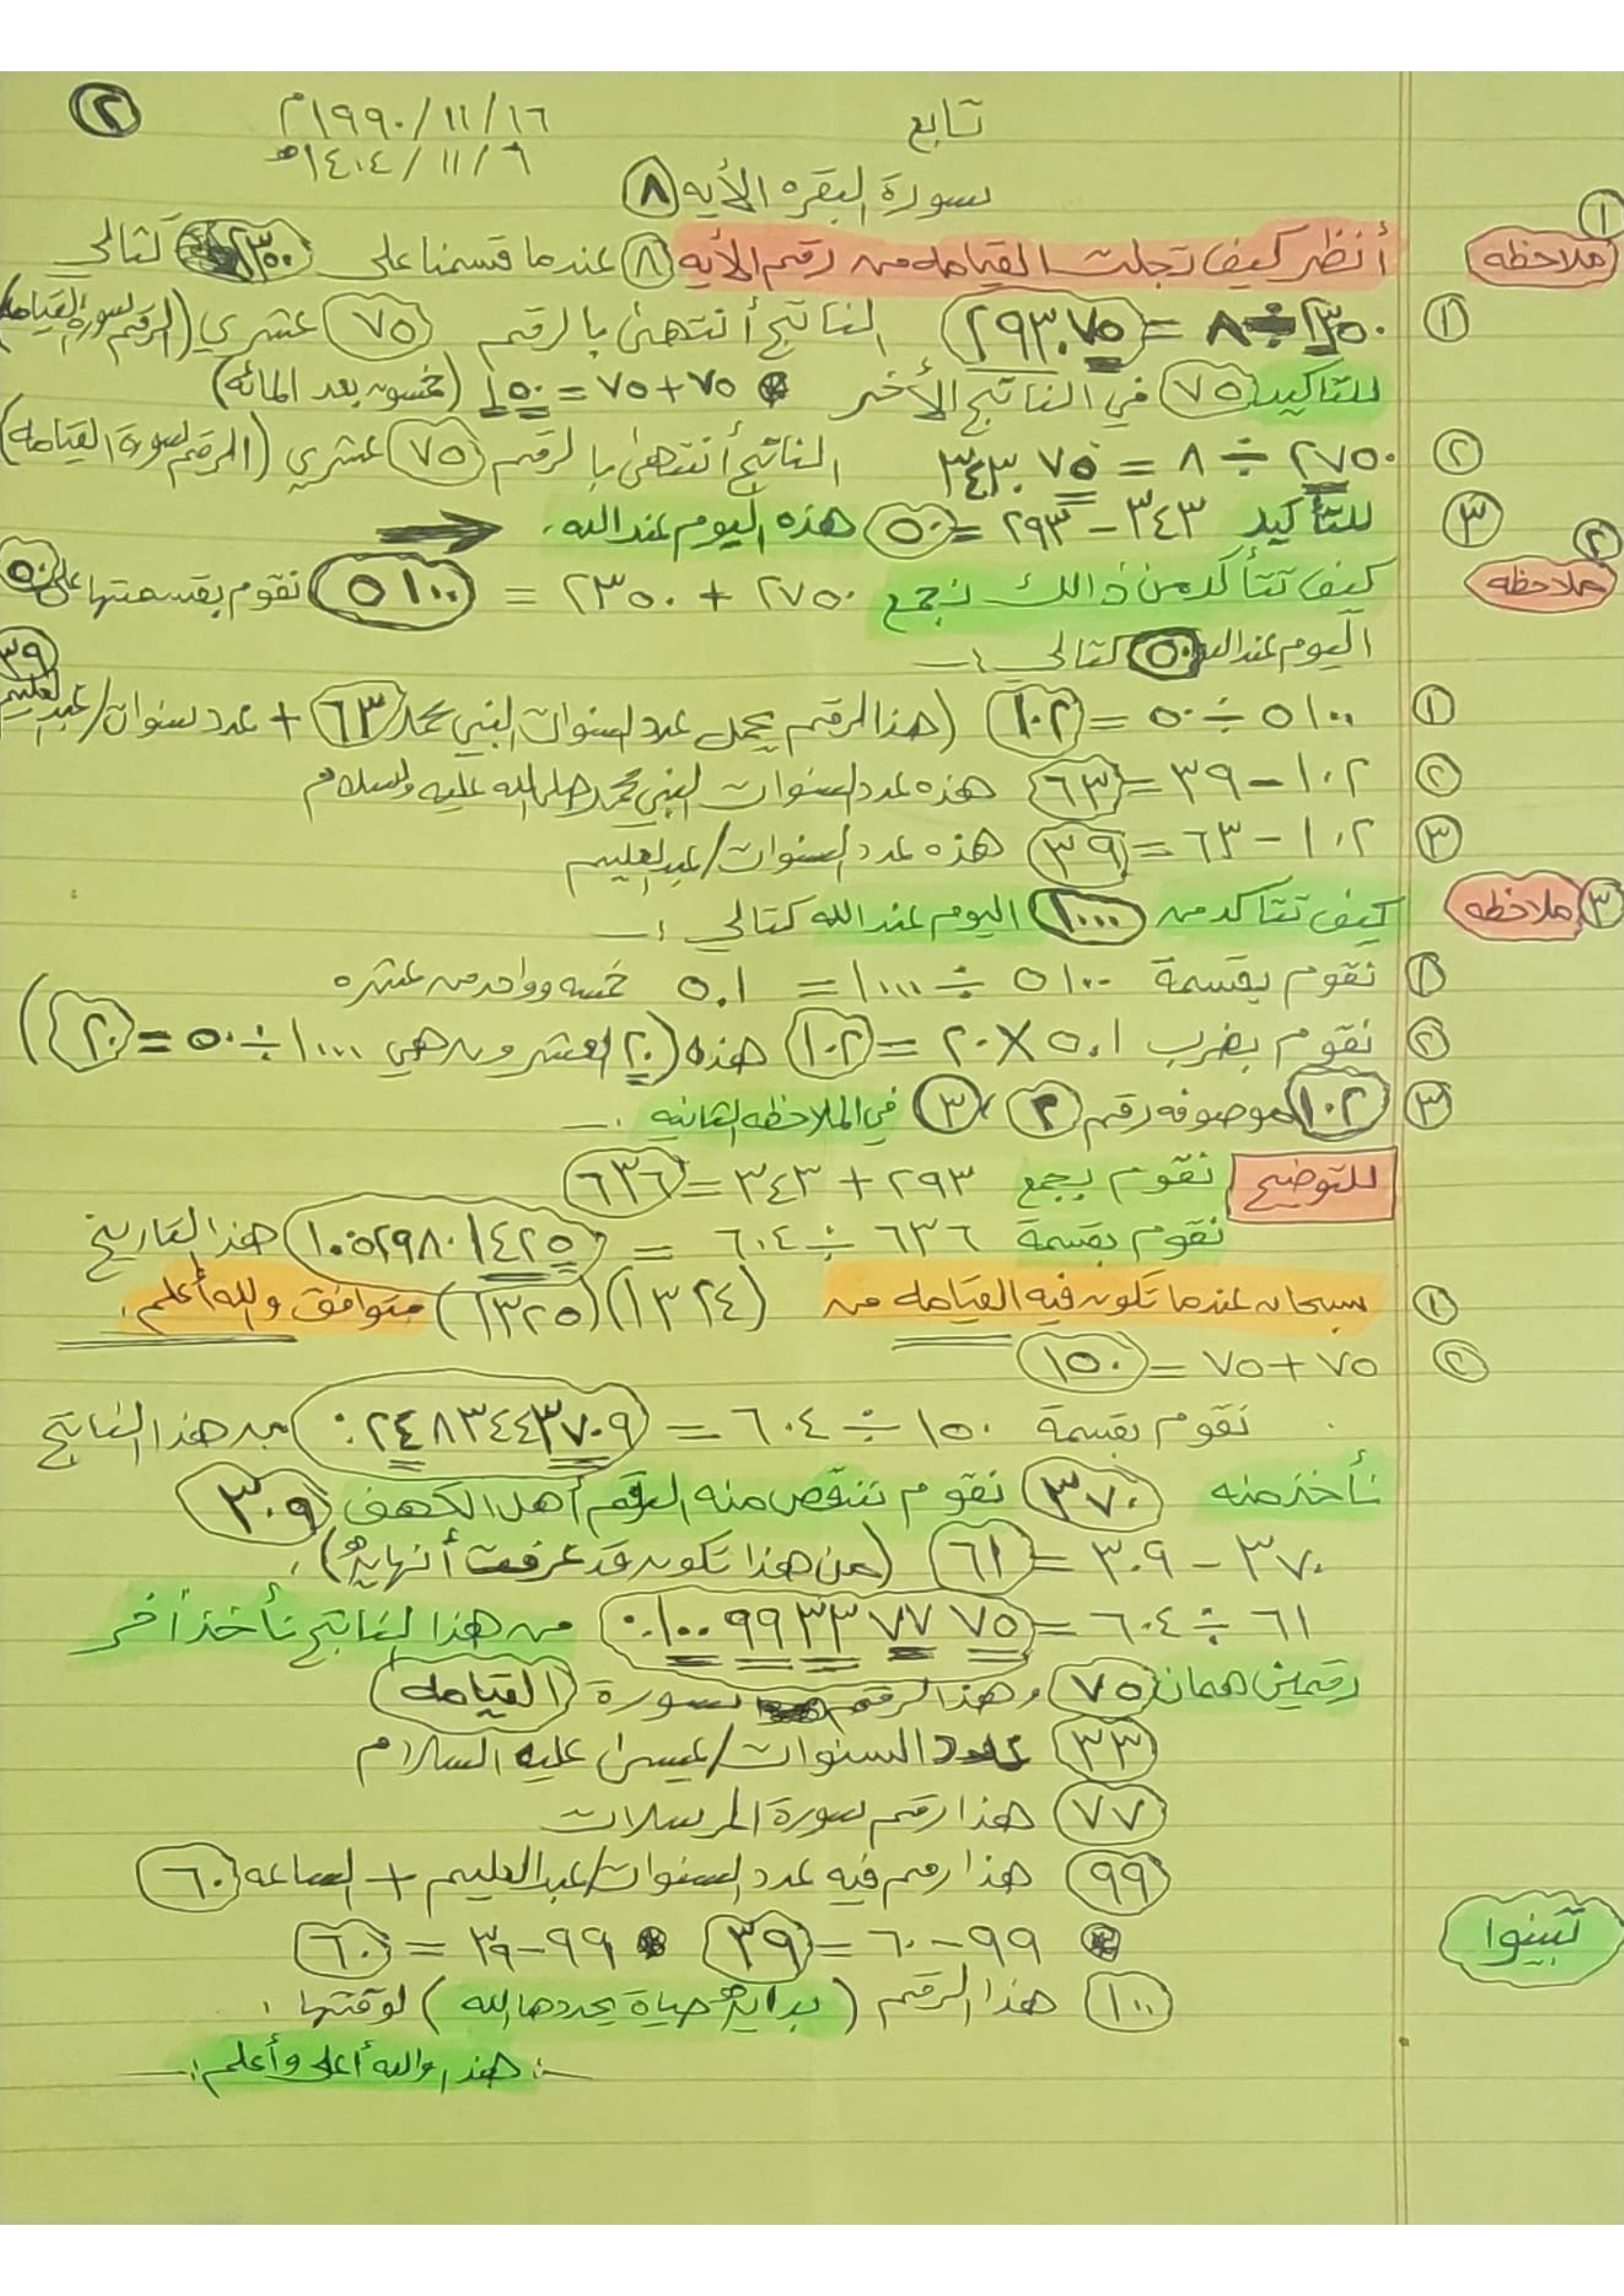 ٢
١٩٩٠/١١/١٦م
تابع
١٤٠٤/١١/٦هـ
سورة البقره الأيه ٨
١
ملاحظه أنظر كيف تجلت القيامه من رقم الأيه ٨ عندما قسمنا على ٢٣٥٠ كتالي
١ ٢٣٥٠ ÷ ٨ = ٢٩٣.٧٥ الناتج أنتهى بالرقم ٧٥ عشري (الرقم سورة القيامه)
للتاكيد ٧٥ في الناتج الأخر ٧٥ + ٧٥ = ١٥٠ (خمسون بعد المائه)
٢ ٢٧٥٠ ÷ ٨ = ٣٤٣.٧٥ الناتج أنتهى بالرقم ٧٥ عشري (الرقم سورة القيامه)
٣ للتأكيد ٣٤٣ - ٢٩٣ = ٥٠ هذه اليوم عند الله.
٢
ملاحظه كيف تتأكد من ذالك نجمع ٢٧٥٠ + ٢٣٥٠ = ٥١٠٠ نقوم بقسمتها على ٥٠
اليوم عند الله ٥٠ كتالي :-
٣٩
١ ٥١٠٠ ÷ ٥٠ = ١٠٢ (هذا الرقم يحمل عدد السنوات النبي محمد ٦٣ + عدد سنوات/عبدالعليم
٢ ١٠٢ - ٣٩ = ٦٣ هذه عدد السنوات النبي محمد صلى الله عليه وسلام
٣ ١٠٢ - ٦٣ = ٣٩ هذه عدد السنوات/عبدالعليم
٣ ملاحظه كيف تتاكد من ١٠٠٠ اليوم عند الله كتالي :-
١ نقوم بقسمة ٥١٠٠ ÷ ١٠٠٠ = ٥.١ خمسه وواحد من عشره
٢ نقوم بضرب ٥.١ × ٢٠ = ١٠٢ هذه (٢٠ العشرون هي ١٠٠٠ ÷ ٥٠ = ٢٠)
٣ ١٠٢ موصوفه رقم ٢ ، ٣ في الملاحظه الثانيه .-
للتوضيح نقوم بجمع ٢٩٣ + ٣٤٣ = ٦٣٦
نقوم بقسمة ٦٣٦ ÷ ٦٠٤ = ١.٠٥٢٩٨٠١٤٢٥ هذا التاريخ
١ سبحان عندما تكون فيه القيامه من (١٣٢٤)(١٣٢٥) متوافق والله أعلم.
٢ ٧٥ + ٧٥ = ١٥٠
نقوم بقسمة ١٥٠ ÷ ٦٠٤ = ٠.٢٤٨٣٤٤٣٧٠٩ من هذا الناتج
نأخذ منه ٣٧٠ نقوم تنقص منه الرقم أهل الكهف ٣٠٩
٣٧٠ - ٣٠٩ = ٦١ (من هذا تكون قد عرفت أنهايه).
٦١ ÷ ٦٠٤ = ٠.١٠٠٩٩٣٣٧٧٧٥ من هذا الناتج نأخذ أخر
رقمين همان ٧٥ وهذا الرقم سورة (القيامه)
٣٣ عدد السنوات/عيسى عليه السلام
٧٧ هذا رقم سورة المرسلات
٩٩ هذا رمم فيه عدد السنوات/عبدالعليم + الساعه ٦٠
تبينوا
٩٩ - ٦٠ = ٣٩ ٩٩ - ٣٩ = ٦٠
١٠٠ هذا الرقم (بدايه حياة يحددها الله) لوقتها .
-: هذا والله أعلى وأعلم :-